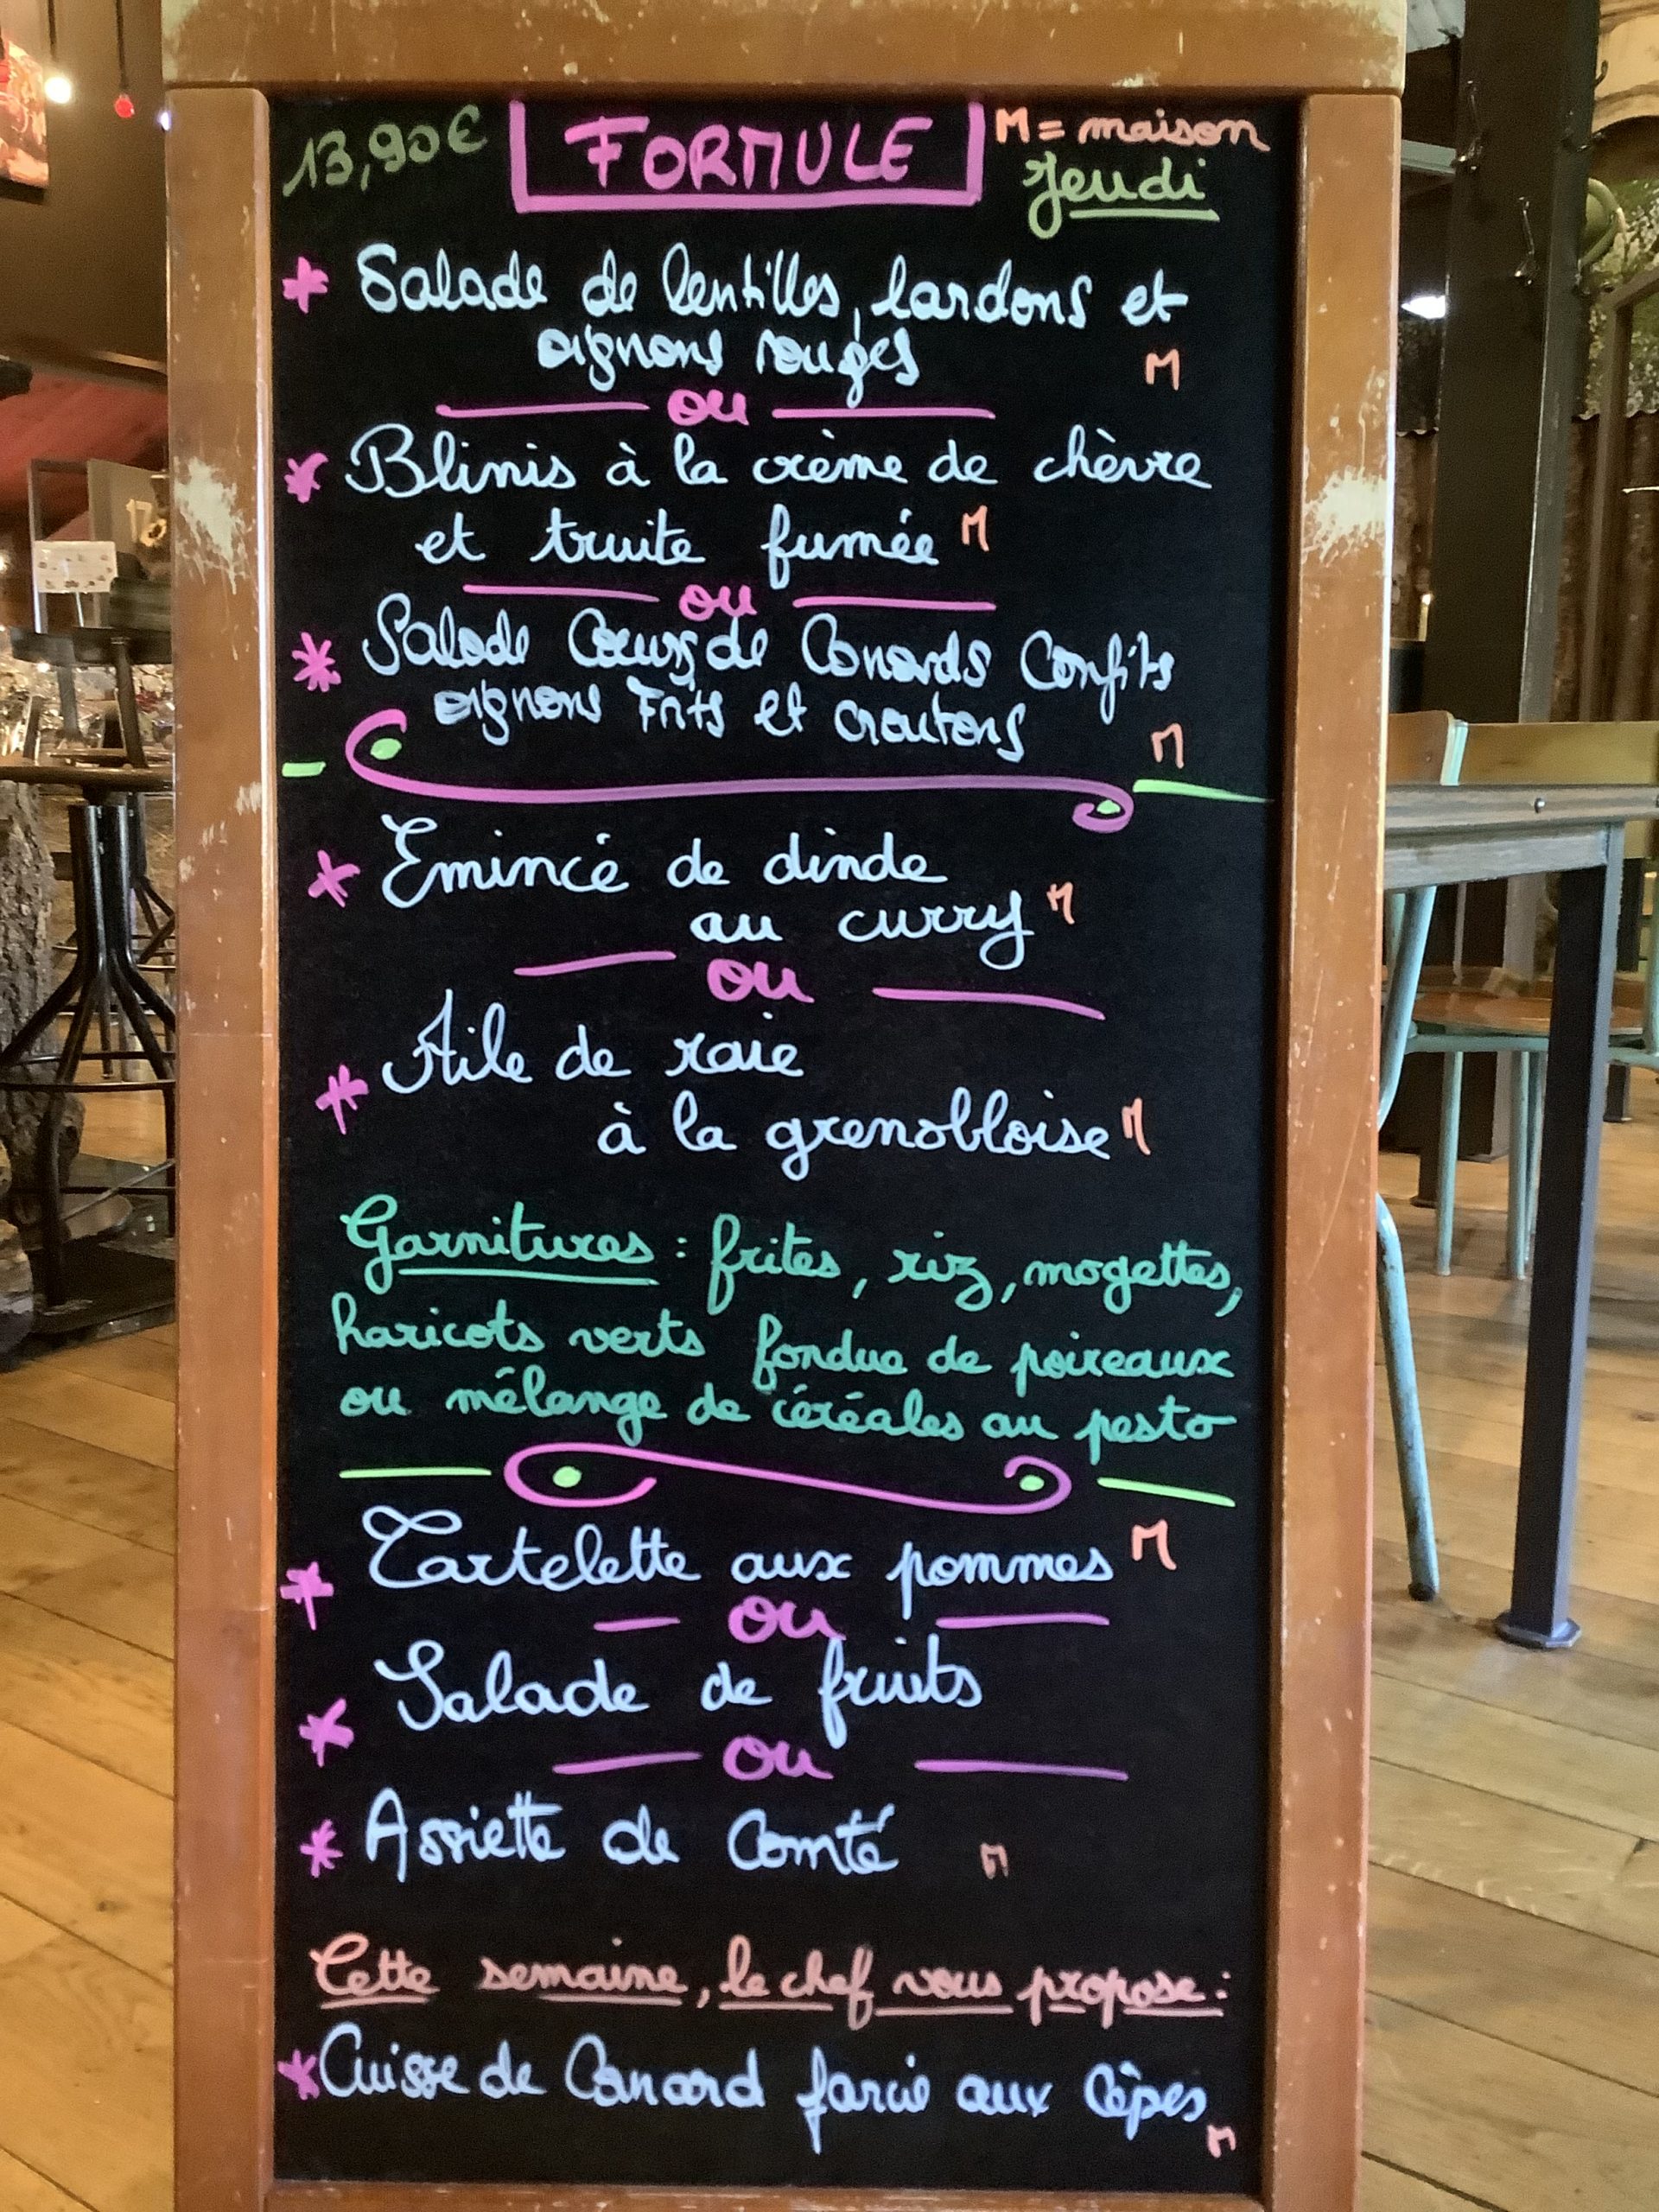 13,90€ FORMULE M = maison
Jeudi
* Salade de lentilles, lardons et
oignons rouges M
ou
* Blinis à la crème de chèvre
et truite fumée M
ou
* Salade Cœurs de Canards Confits
oignons Frits et croutons M
* Emincé de dinde
au curry M
ou
* Aile de raie
à la grenobloise M
Garnitures : frites, riz, mogettes,
haricots verts fondue de poireaux
ou mélange de céréales au pesto
* Tartelette aux pommes M
ou
* Salade de fruits
ou
* Assiette de Comté M
Cette semaine, le chef vous propose :
* Cuisse de Canard farcie aux Cèpes
M